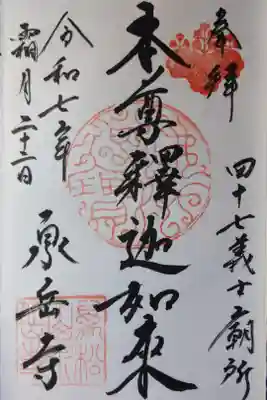 奉拝
四十七義士廟所
本尊釋迦如來
令和七年
霜月二十二日
泉岳寺